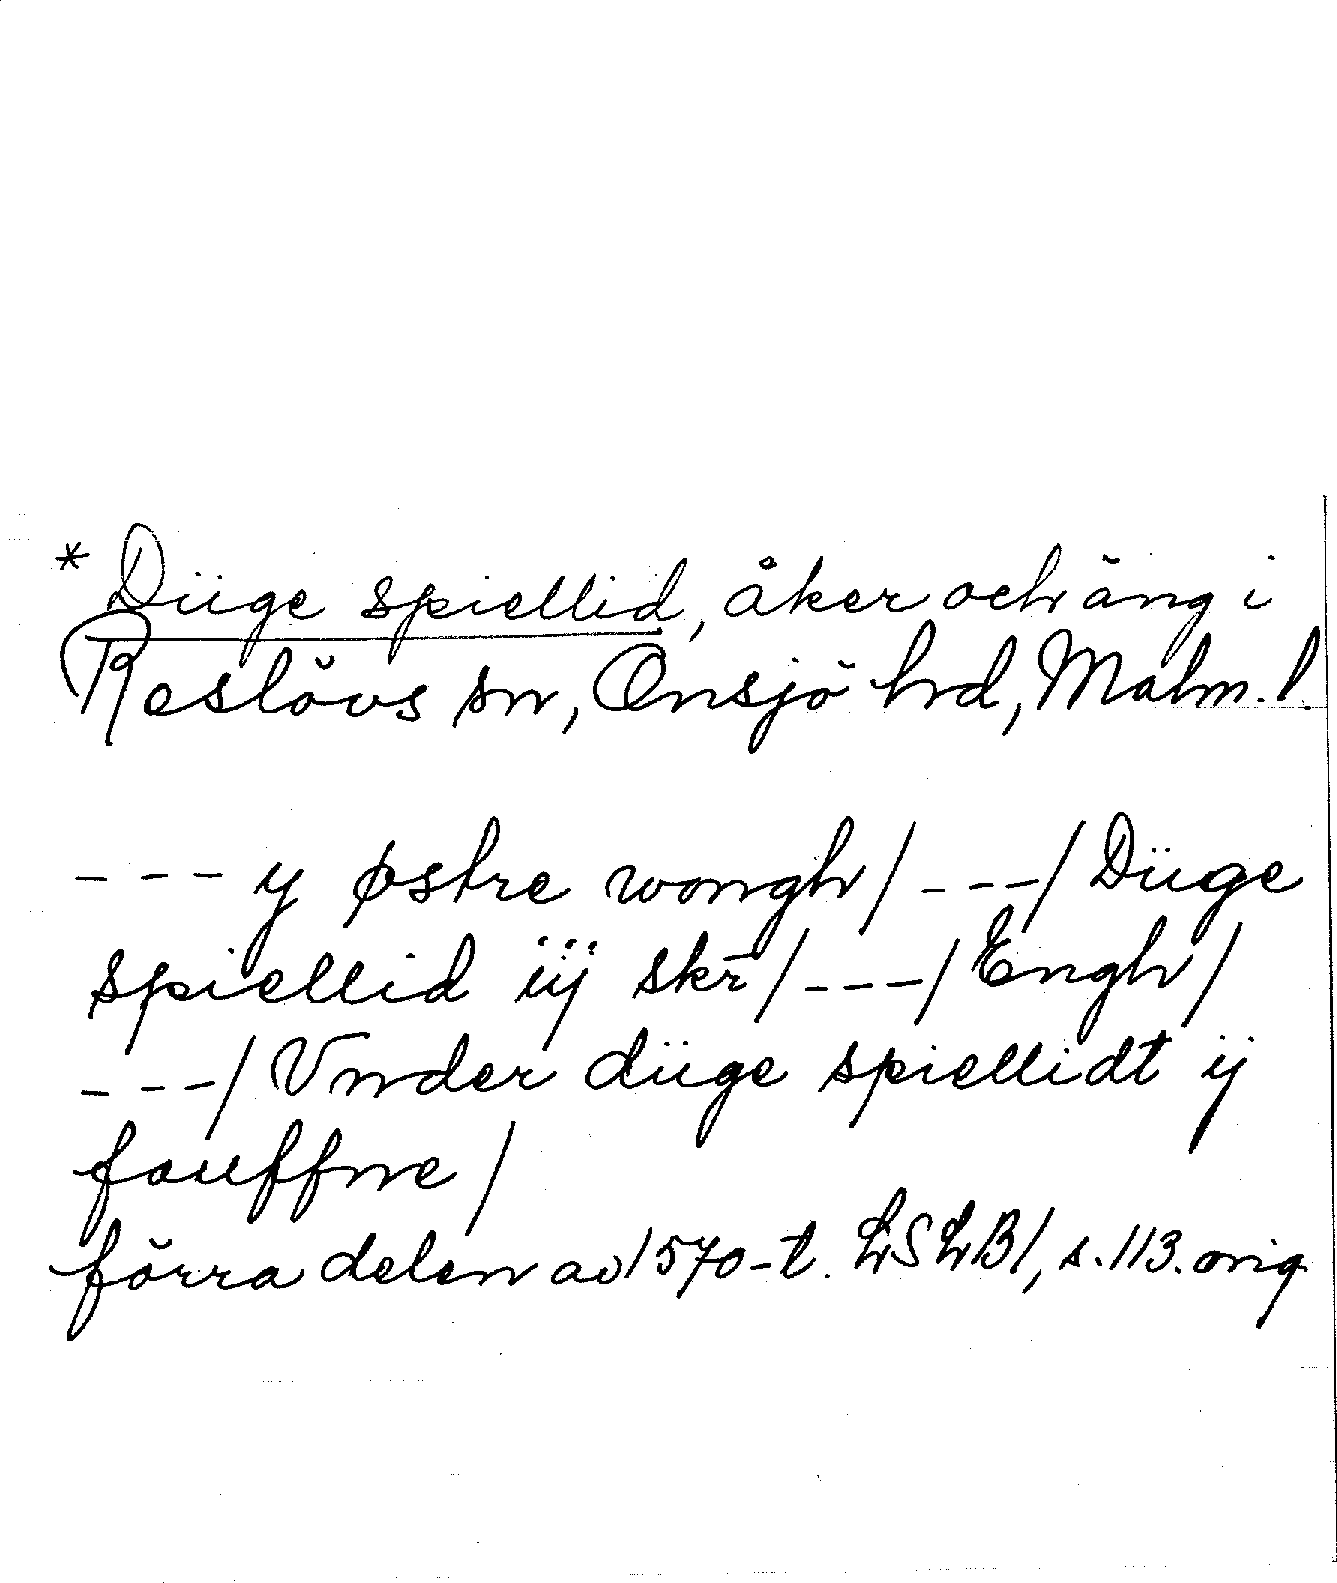 * Düge spiellid, åker och äng i
Reslövs sn, Onsjö hd, Malm. l.
--- y østre wongh / --- / Düge
spiellid iij skr̄ / --- / Engh /
--- / Vnder düge spiellidt ij
fouffne /
förra delen av 1570-t. LSLB1, s. 113. orig.